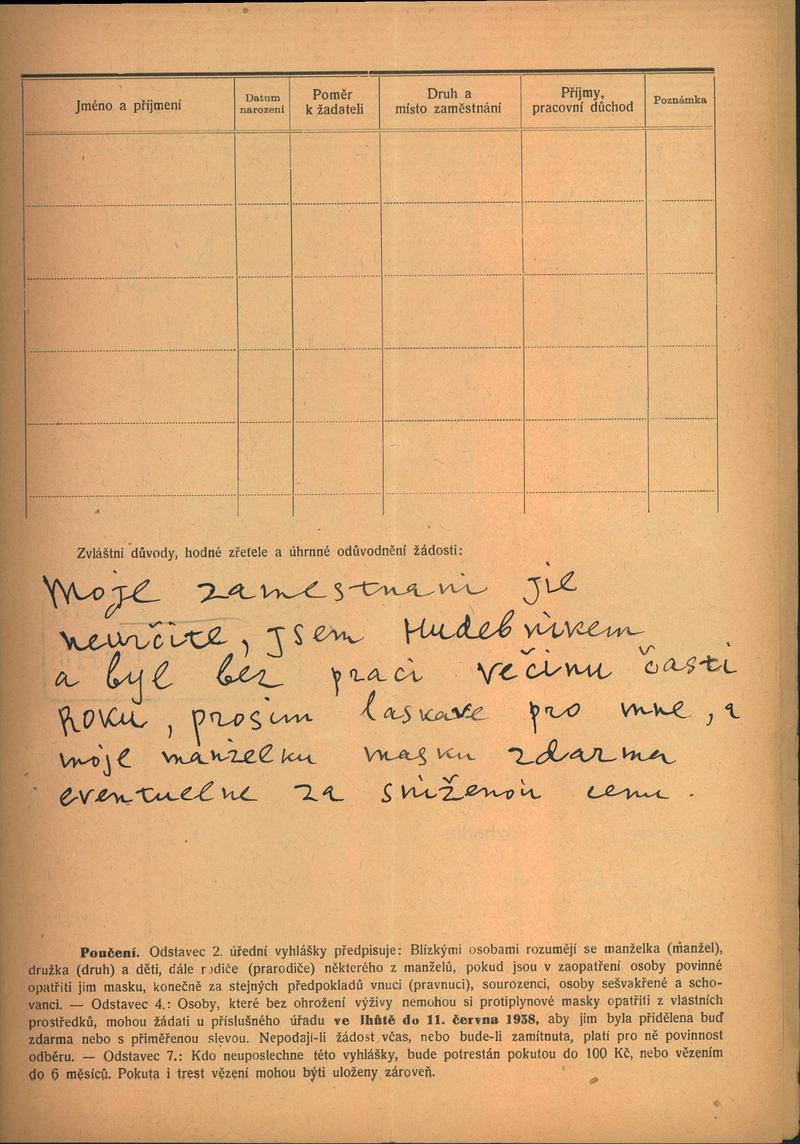 Jméno a příjmení
Datum narození
Poměr k žadateli
Druh a místo zaměstnání
Příjmy, pracovní důchod
Poznámka
Zvláštní důvody, hodné zřetele a úhrnné odůvodnění žádosti:
Moje zamestnani jie
neurčite, jsem Hudebnikem
a byl bez praci večinu časti
Roku, prosim laskave pro mne, a
moje manzelku masku zdarma
eventuelne za sniženou cenu.
Poučení. Odstavec 2. úřední vyhlášky předpisuje: Blízkými osobami rozumějí se manželka (manžel),
družka (druh) a děti, dále rodiče (prarodiče) některého z manželů, pokud jsou v zaopatření osoby povinné
opatřiti jim masku, konečně za stejných předpokladů vnuci (pravnuci), sourozenci, osoby sešvakřené a scho-
vanci. — Odstavec 4.: Osoby, které bez ohrožení výživy nemohou si protiplynové masky opatřiti z vlastních
prostředků, mohou žádati u příslušného úřadu ve lhůtě do 11. června 1938, aby jim byla přidělena buď
zdarma nebo s přiměřenou slevou. Nepodají-li žádost včas, nebo bude-li zamítnuta, platí pro ně povinnost
odběru. — Odstavec 7.: Kdo neuposlechne této vyhlášky, bude potrestán pokutou do 100 Kč, nebo vězením
do 6 měsíců. Pokuta i trest vězení mohou býti uloženy zároveň.